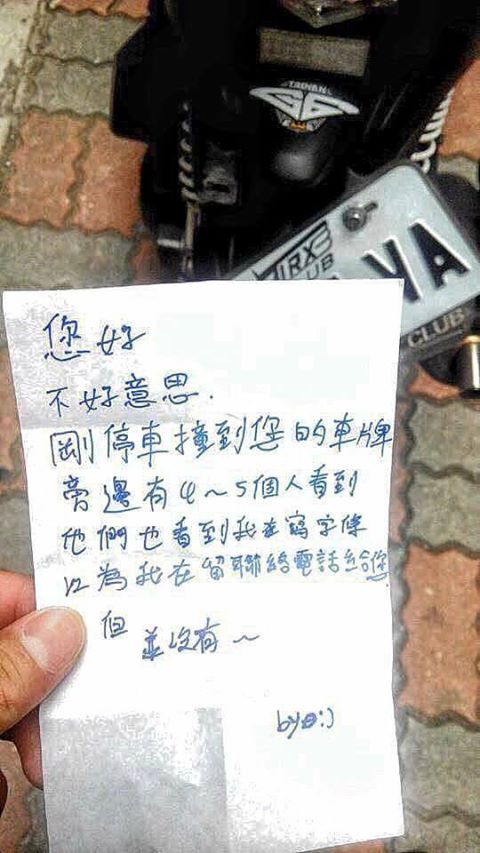 TAIWAN
TRXE
CLUB
VA
CLUB
您好
不好意思.
剛停車撞到您的車牌
旁邊有4~5個人看到
他們也看到我在寫字條
以為我在留聯絡電話給您
但並沒有~
by